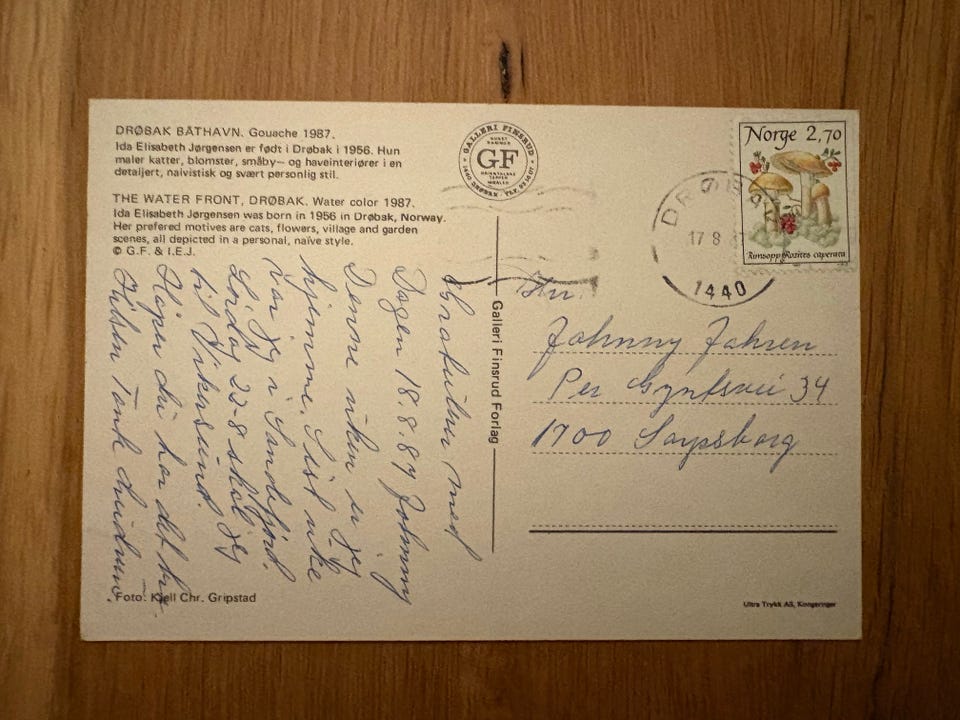 DRØBAK BÅTHAVN. Gouache 1987.
Ida Elisabeth Jørgensen er født i Drøbak i 1956. Hun
maler katter, blomster, småby- og haveinteriører i en
detaljert, naivistisk og svært personlig stil.
THE WATER FRONT, DRØBAK. Water color 1987.
Ida Elisabeth Jørgensen was born in 1956 in Drøbak, Norway.
Her prefered motives are cats, flowers, village and garden
scenes, all depicted in a personal, naive style.
© G.F. & I.E.J.
GALLERI FINSRUD
GF
1440 DRØBAK
Gratulerer med
Dagen 18.8.89 Johnny
Denne uken er jeg
hjemme. Sist uke
var jeg i Sandefjord.
Lørdag 22-8 skal jeg
til Vikersund.
Håper du har det bra.
Hilsen
Foto: Kjell Chr. Gripstad
Galleri Finsrud Forlag
Norge 2,70
Rimsopp Rozites caperata
DRØBAK
17 8
1440
Hr.
Johnny Jahren
Per Gyntsvei 34
1700 Sarpsborg
Ultra Trykk AS, Kongsvinger